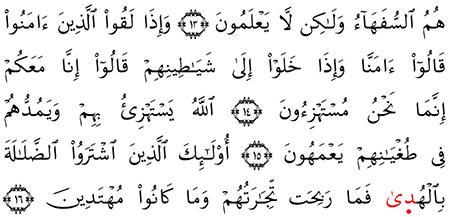 هُمُ ٱلسُّفَهَآءُ وَلَـٰكِن لَّا يَعْلَمُونَ ﴿١٣﴾ وَإِذَا لَقُوا۟ ٱلَّذِينَ ءَامَنُوا۟
قَالُوٓا۟ ءَامَنَّا وَإِذَا خَلَوْا۟ إِلَىٰ شَيَـٰطِينِهِمْ قَالُوٓا۟ إِنَّا مَعَكُمْ
إِنَّمَا نَحْنُ مُسْتَهْزِءُونَ ﴿١٤﴾ ٱللَّهُ يَسْتَهْزِئُ بِهِمْ وَيَمُدُّهُمْ
فِى طُغْيَـٰنِهِمْ يَعْمَهُونَ ﴿١٥﴾ أُو۟لَـٰٓئِكَ ٱلَّذِينَ ٱشْتَرَوُا۟ ٱلضَّلَـٰلَةَ
بِٱلْهُدَىٰ فَمَا رَبِحَت تِّجَـٰرَتُهُمْ وَمَا كَانُوا۟ مُهْتَدِينَ ﴿١٦﴾